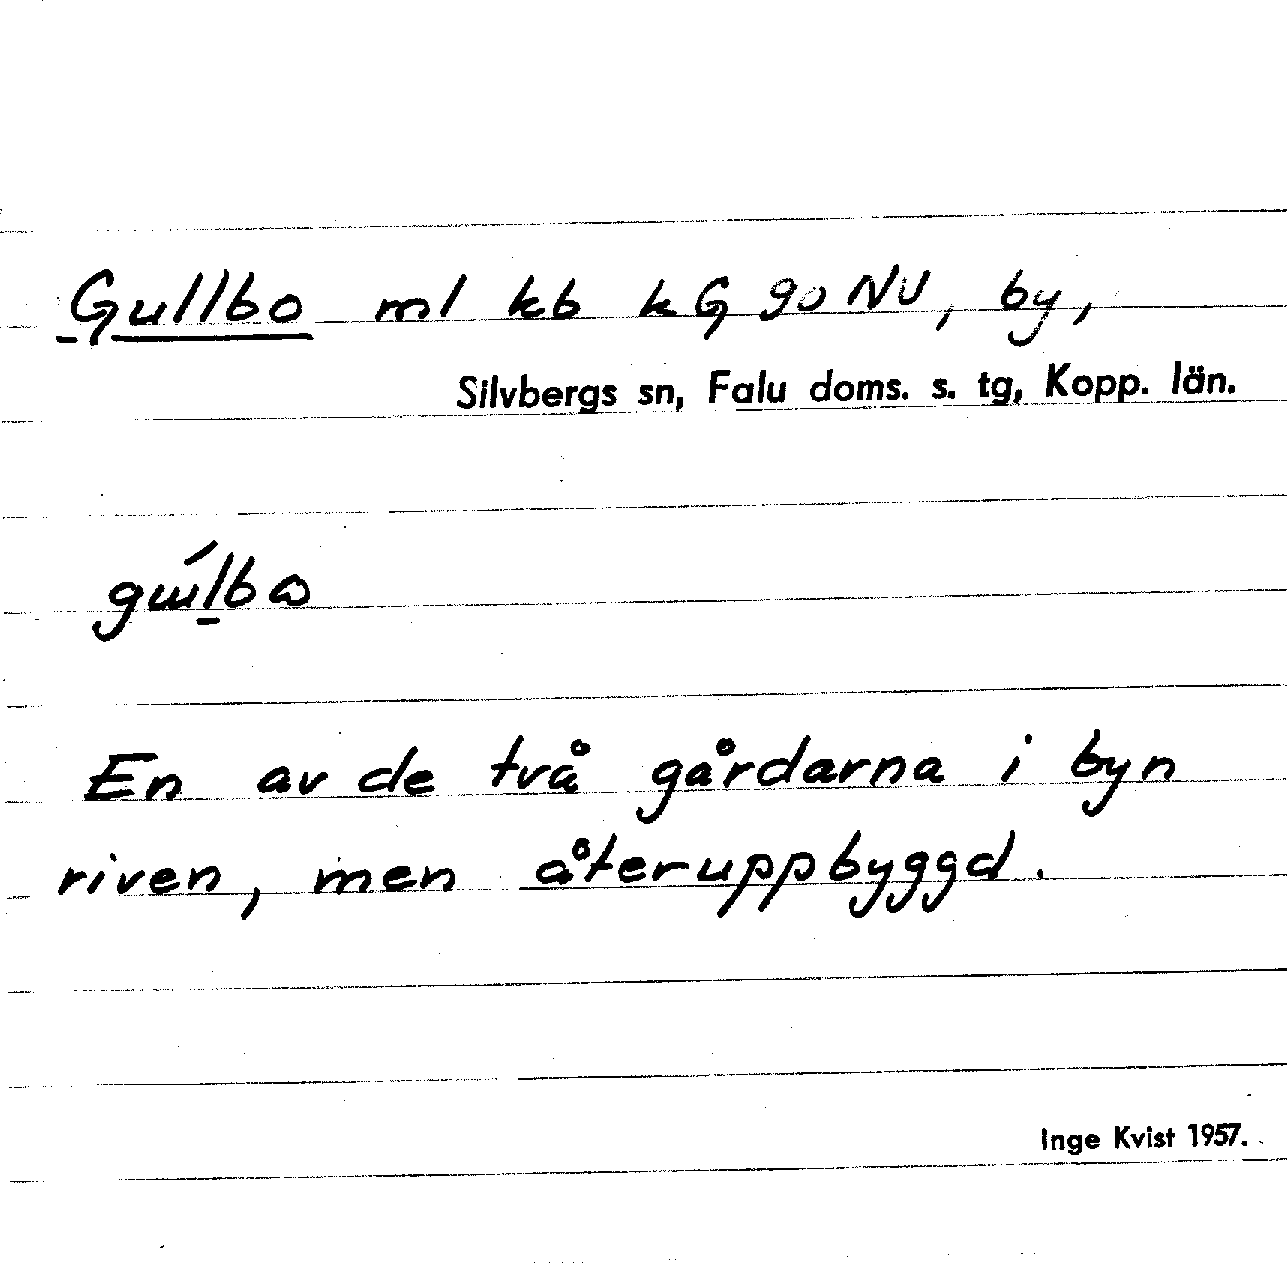 Gullbo ml kb k G 90 NV, by,
Silvbergs sn, Falu doms. s. tg, Kopp. län.
En av de två gårdarna i byn
riven, men återuppbyggd.
Inge Kvist 1957.